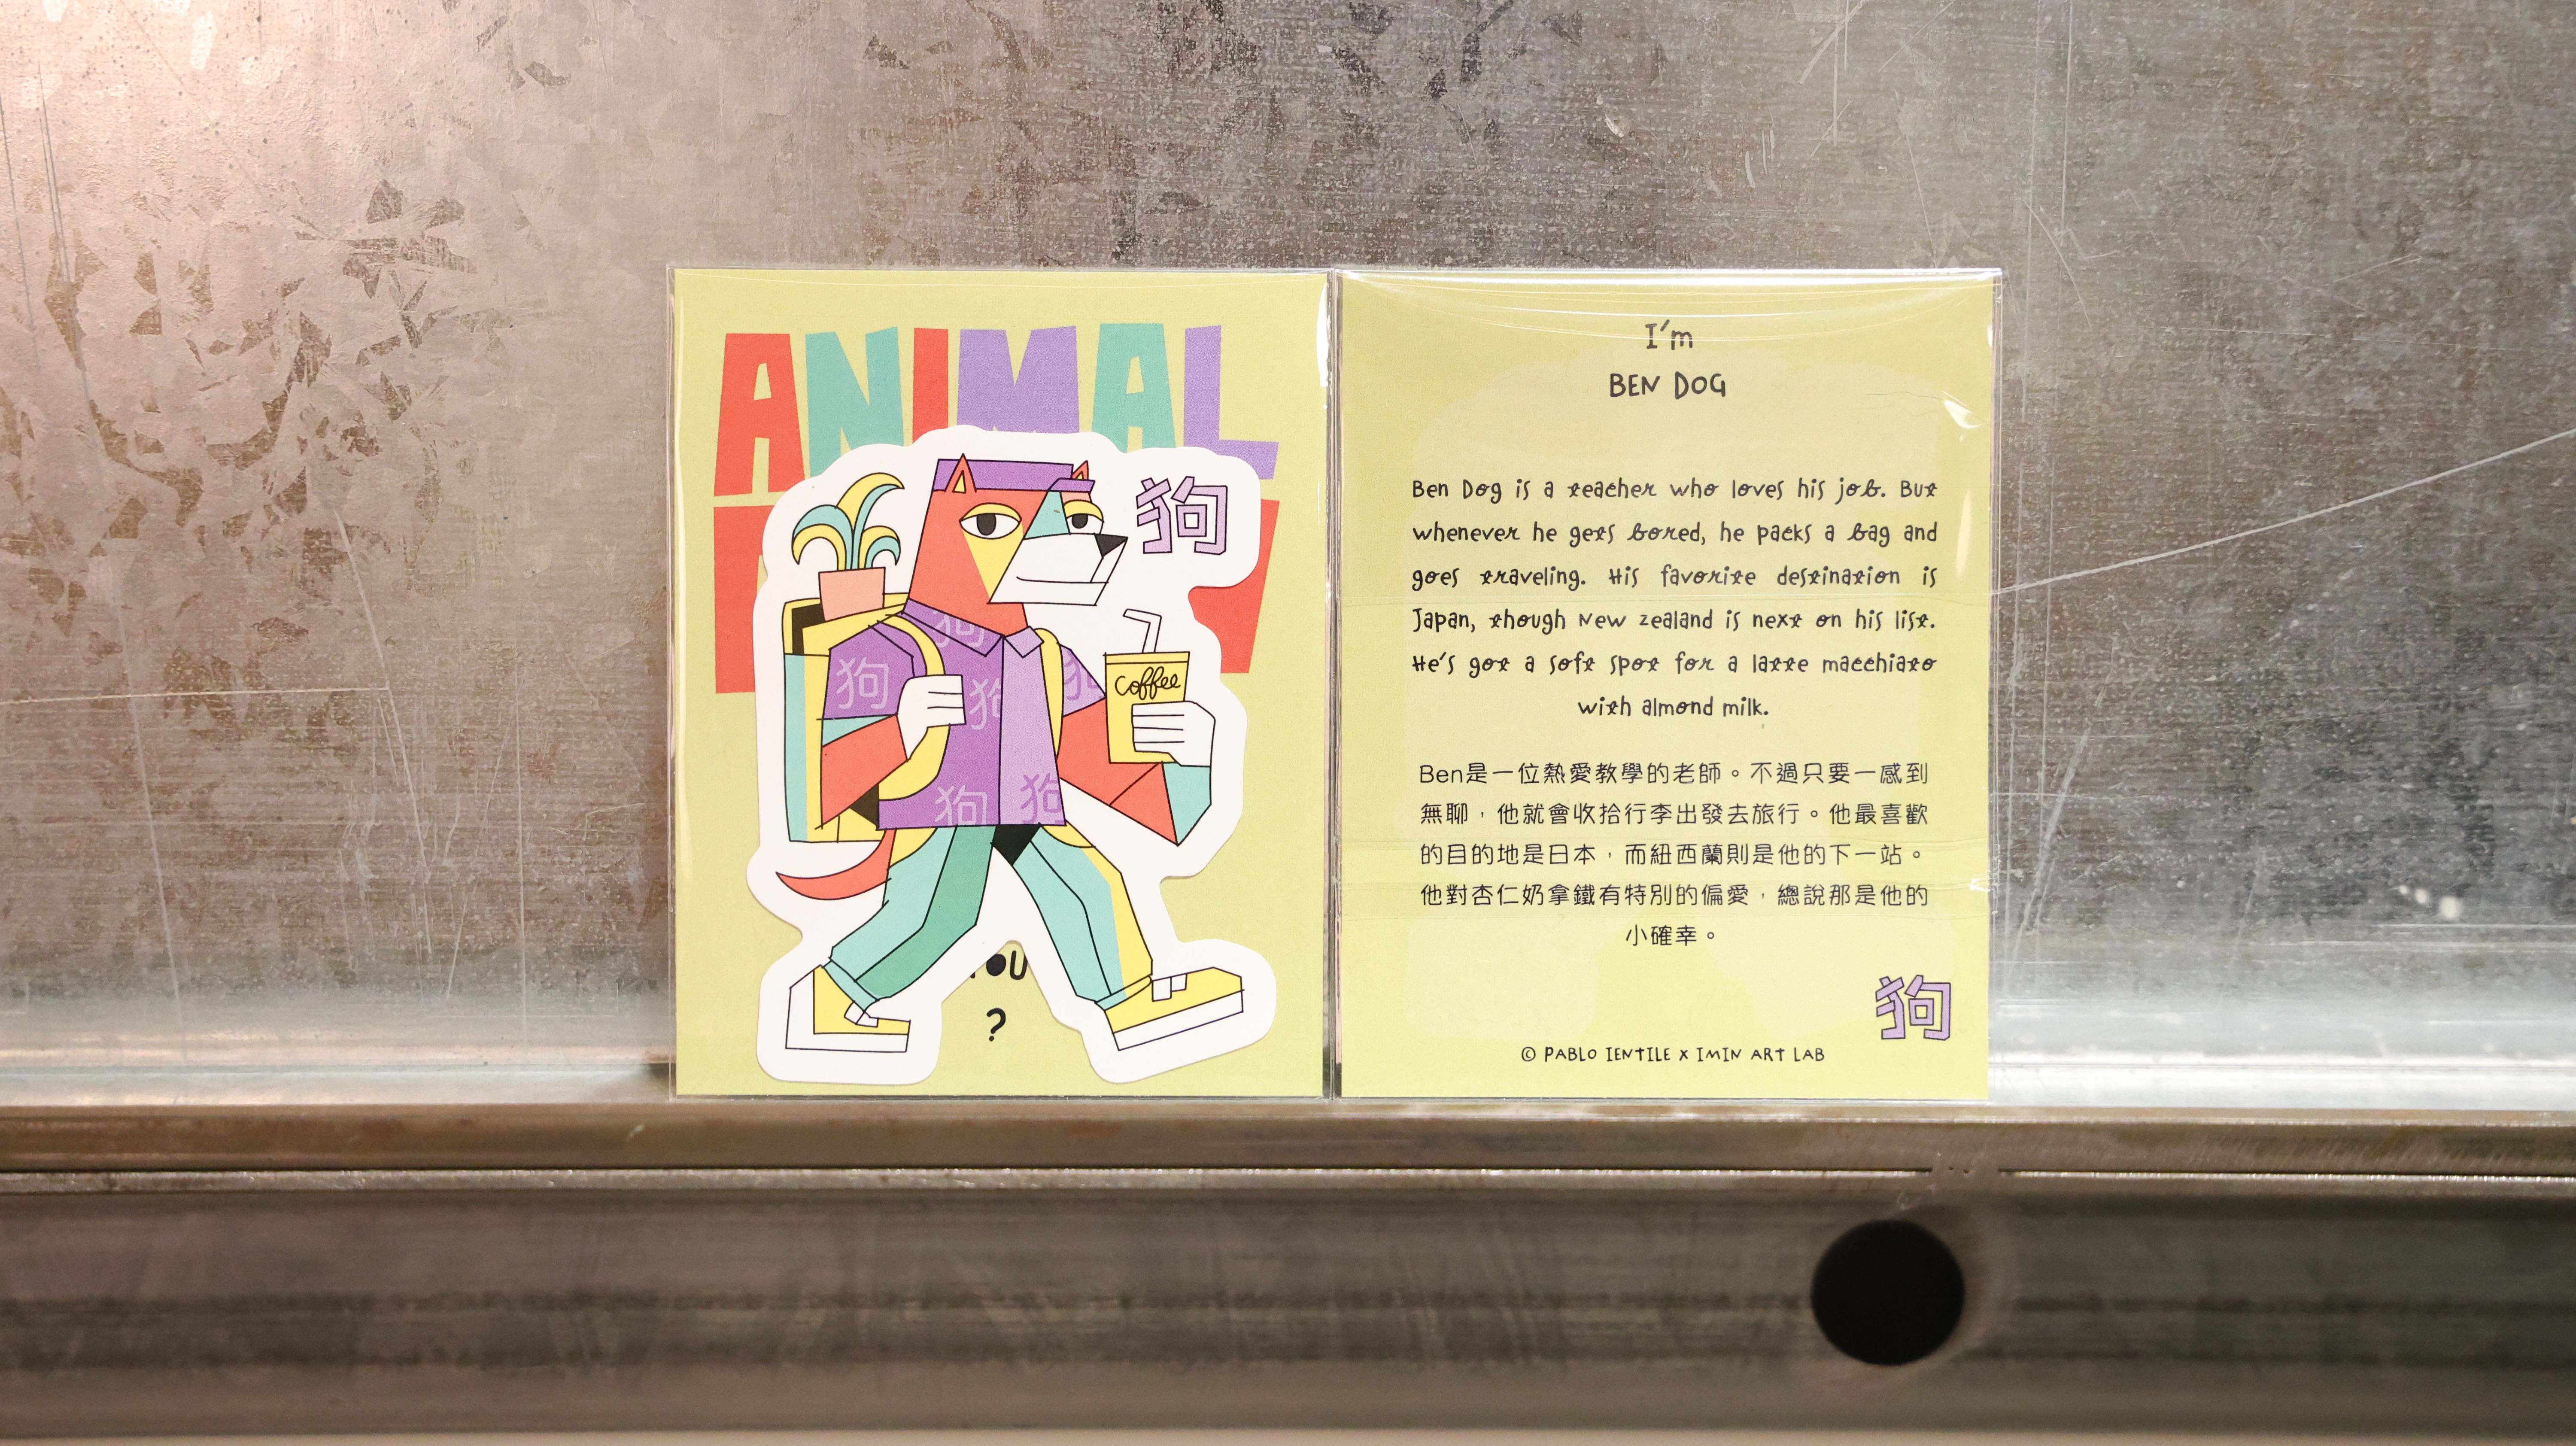 ANIMAL
狗
coffee
狗
狗
狗
狗
狗
狗
YOU
?
I'm
BEN DOG
Ben Dog is a teacher who loves his job. But
whenever he gets bored, he packs a bag and
goes traveling. His favorite destination is
Japan, though New Zealand is next on his list.
He's got a soft spot for a latte macchiato
with almond milk.
Ben是一位熱愛教學的老師。不過只要一感到
無聊，他就會收拾行李出發去旅行。他最喜歡
的目的地是日本，而紐西蘭則是他的下一站。
他對杏仁奶拿鐵有特別的偏愛，總說那是他的
小確幸。
狗
© PABLO IENTILE X IMIN ART LAB